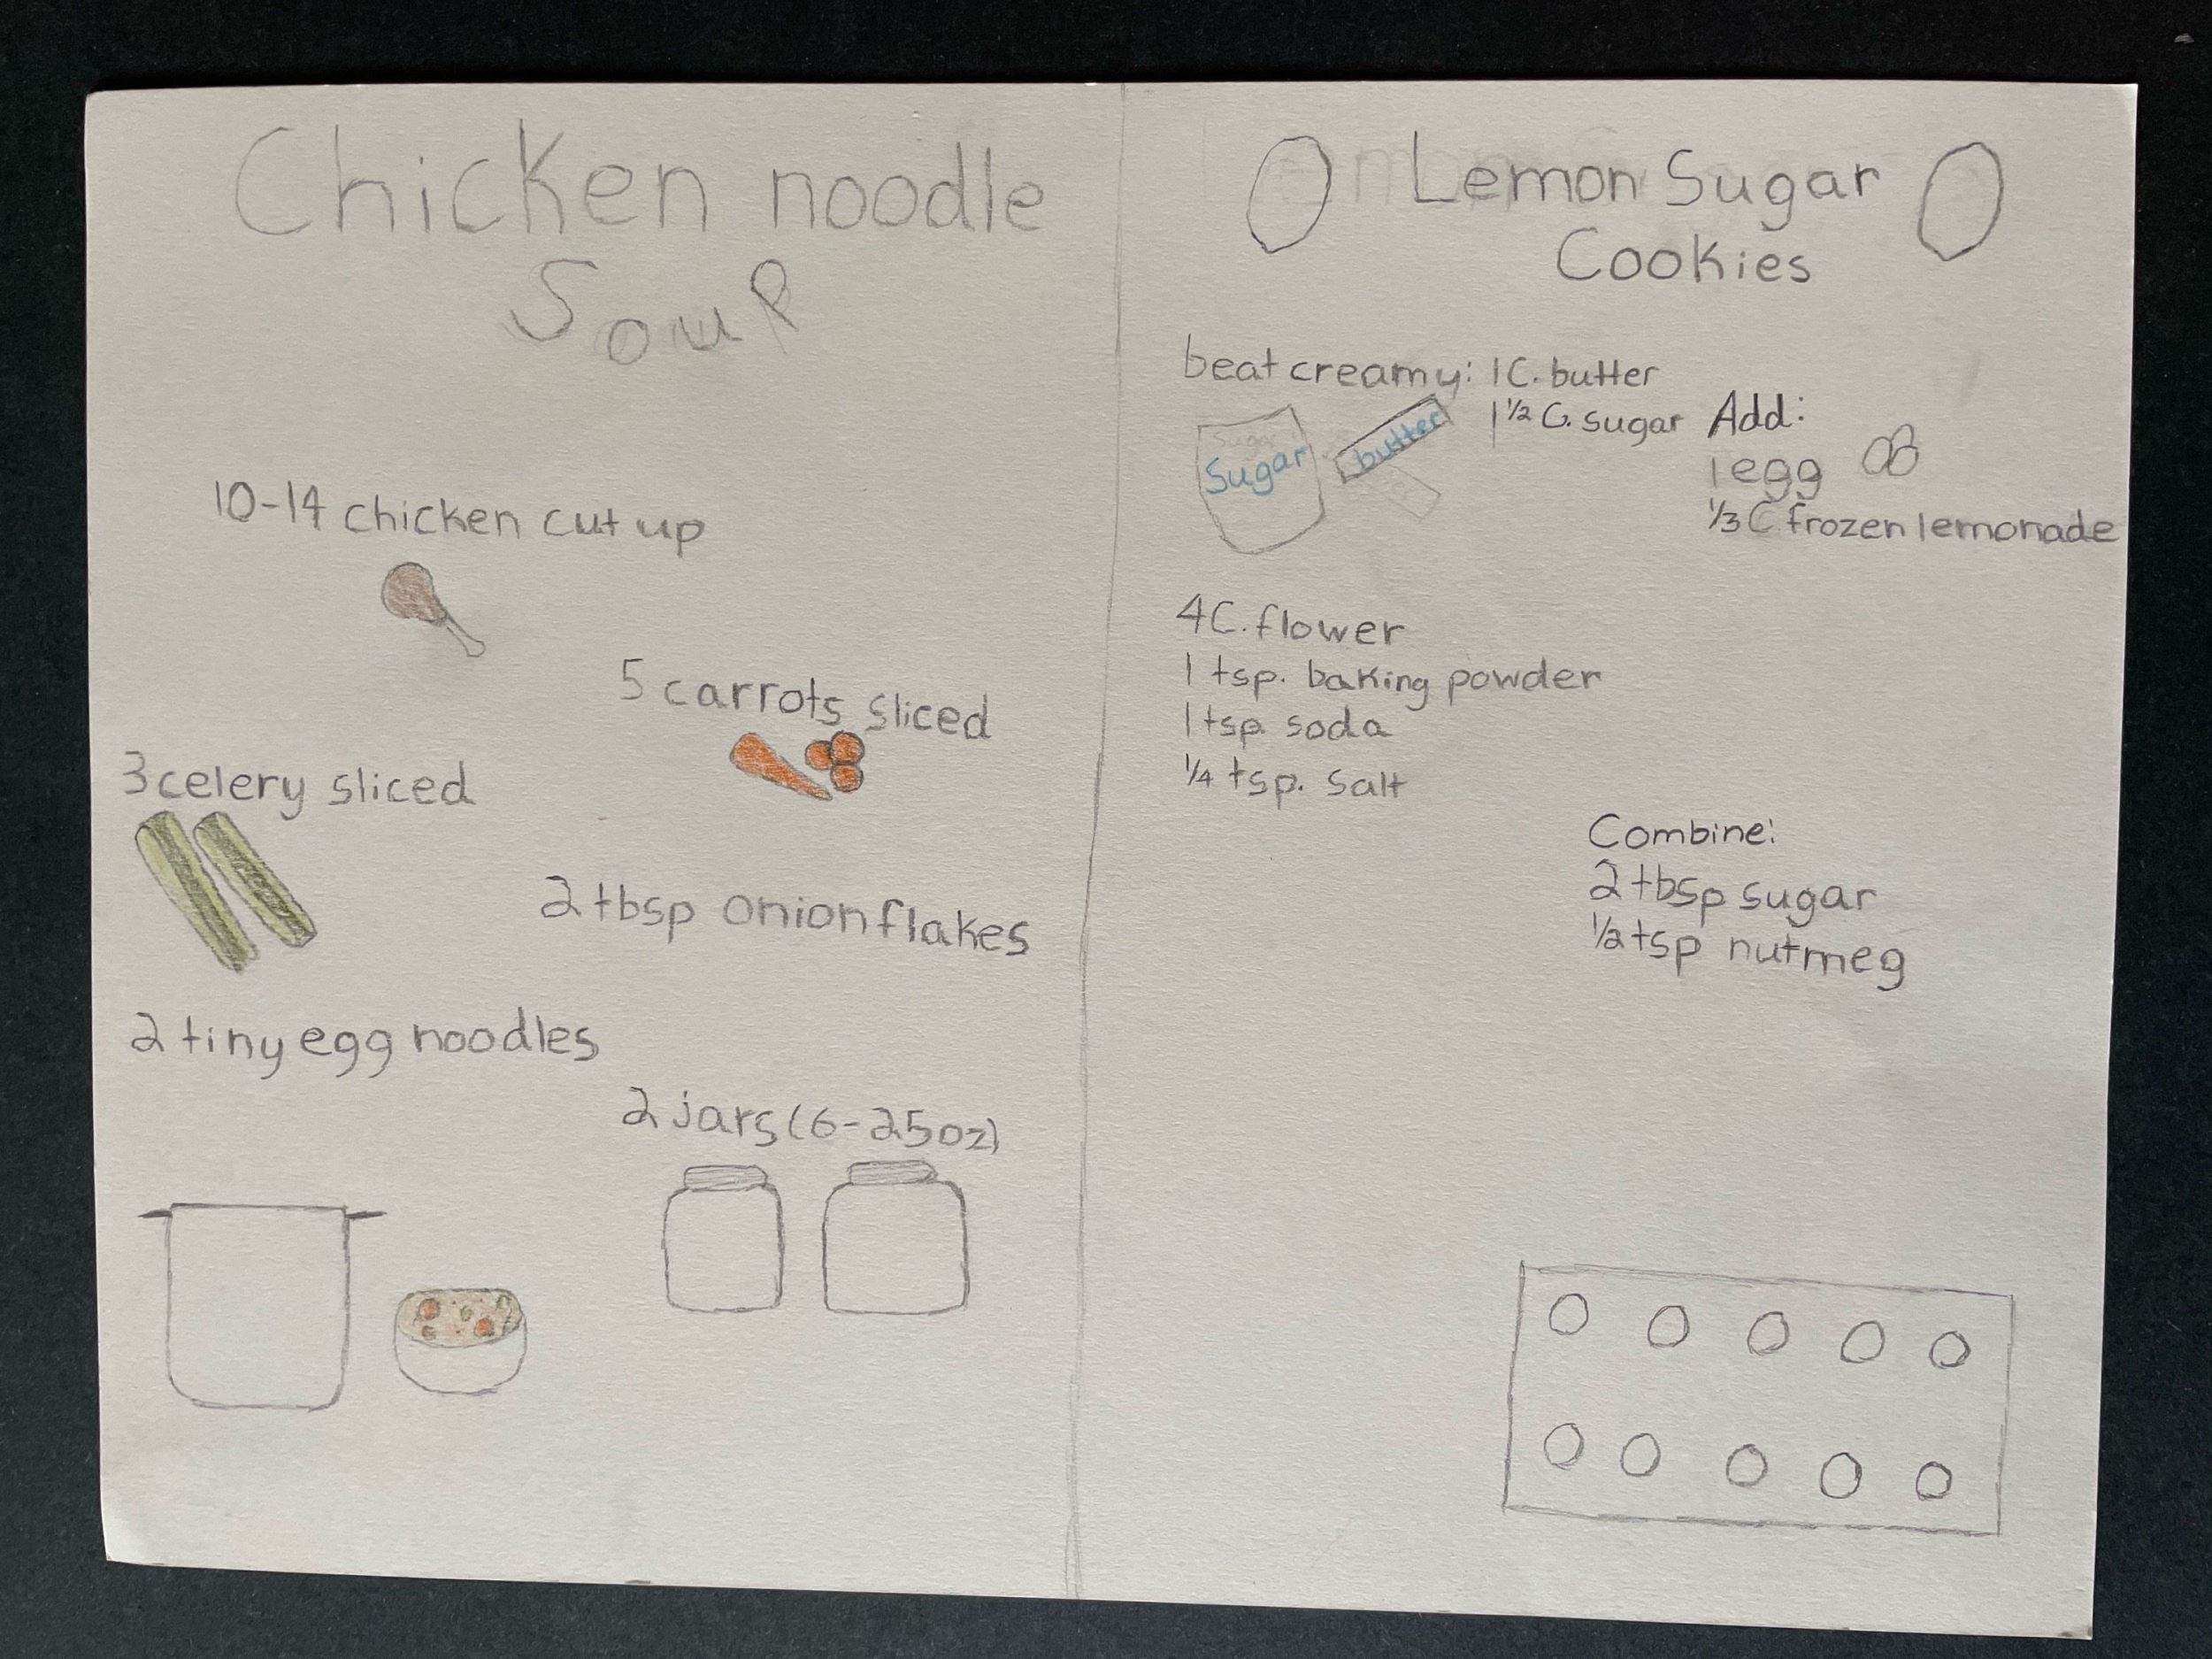 Chicken noodle
Soup
10-14 chicken cut up
5 carrots sliced
3 celery sliced
2 tbsp onion flakes
2 tiny egg noodles
2 jars (6-25oz)
Lemon Sugar
Cookies
beat creamy: 1 C. butter
1 1/2 C. sugar
Sugar
butter
Add:
1 egg
1/3 C frozen lemonade
4 C. flower
1 tsp. baking powder
1 tsp. soda
1/4 tsp. salt
Combine:
2 tbsp sugar
1/2 tsp nutmeg